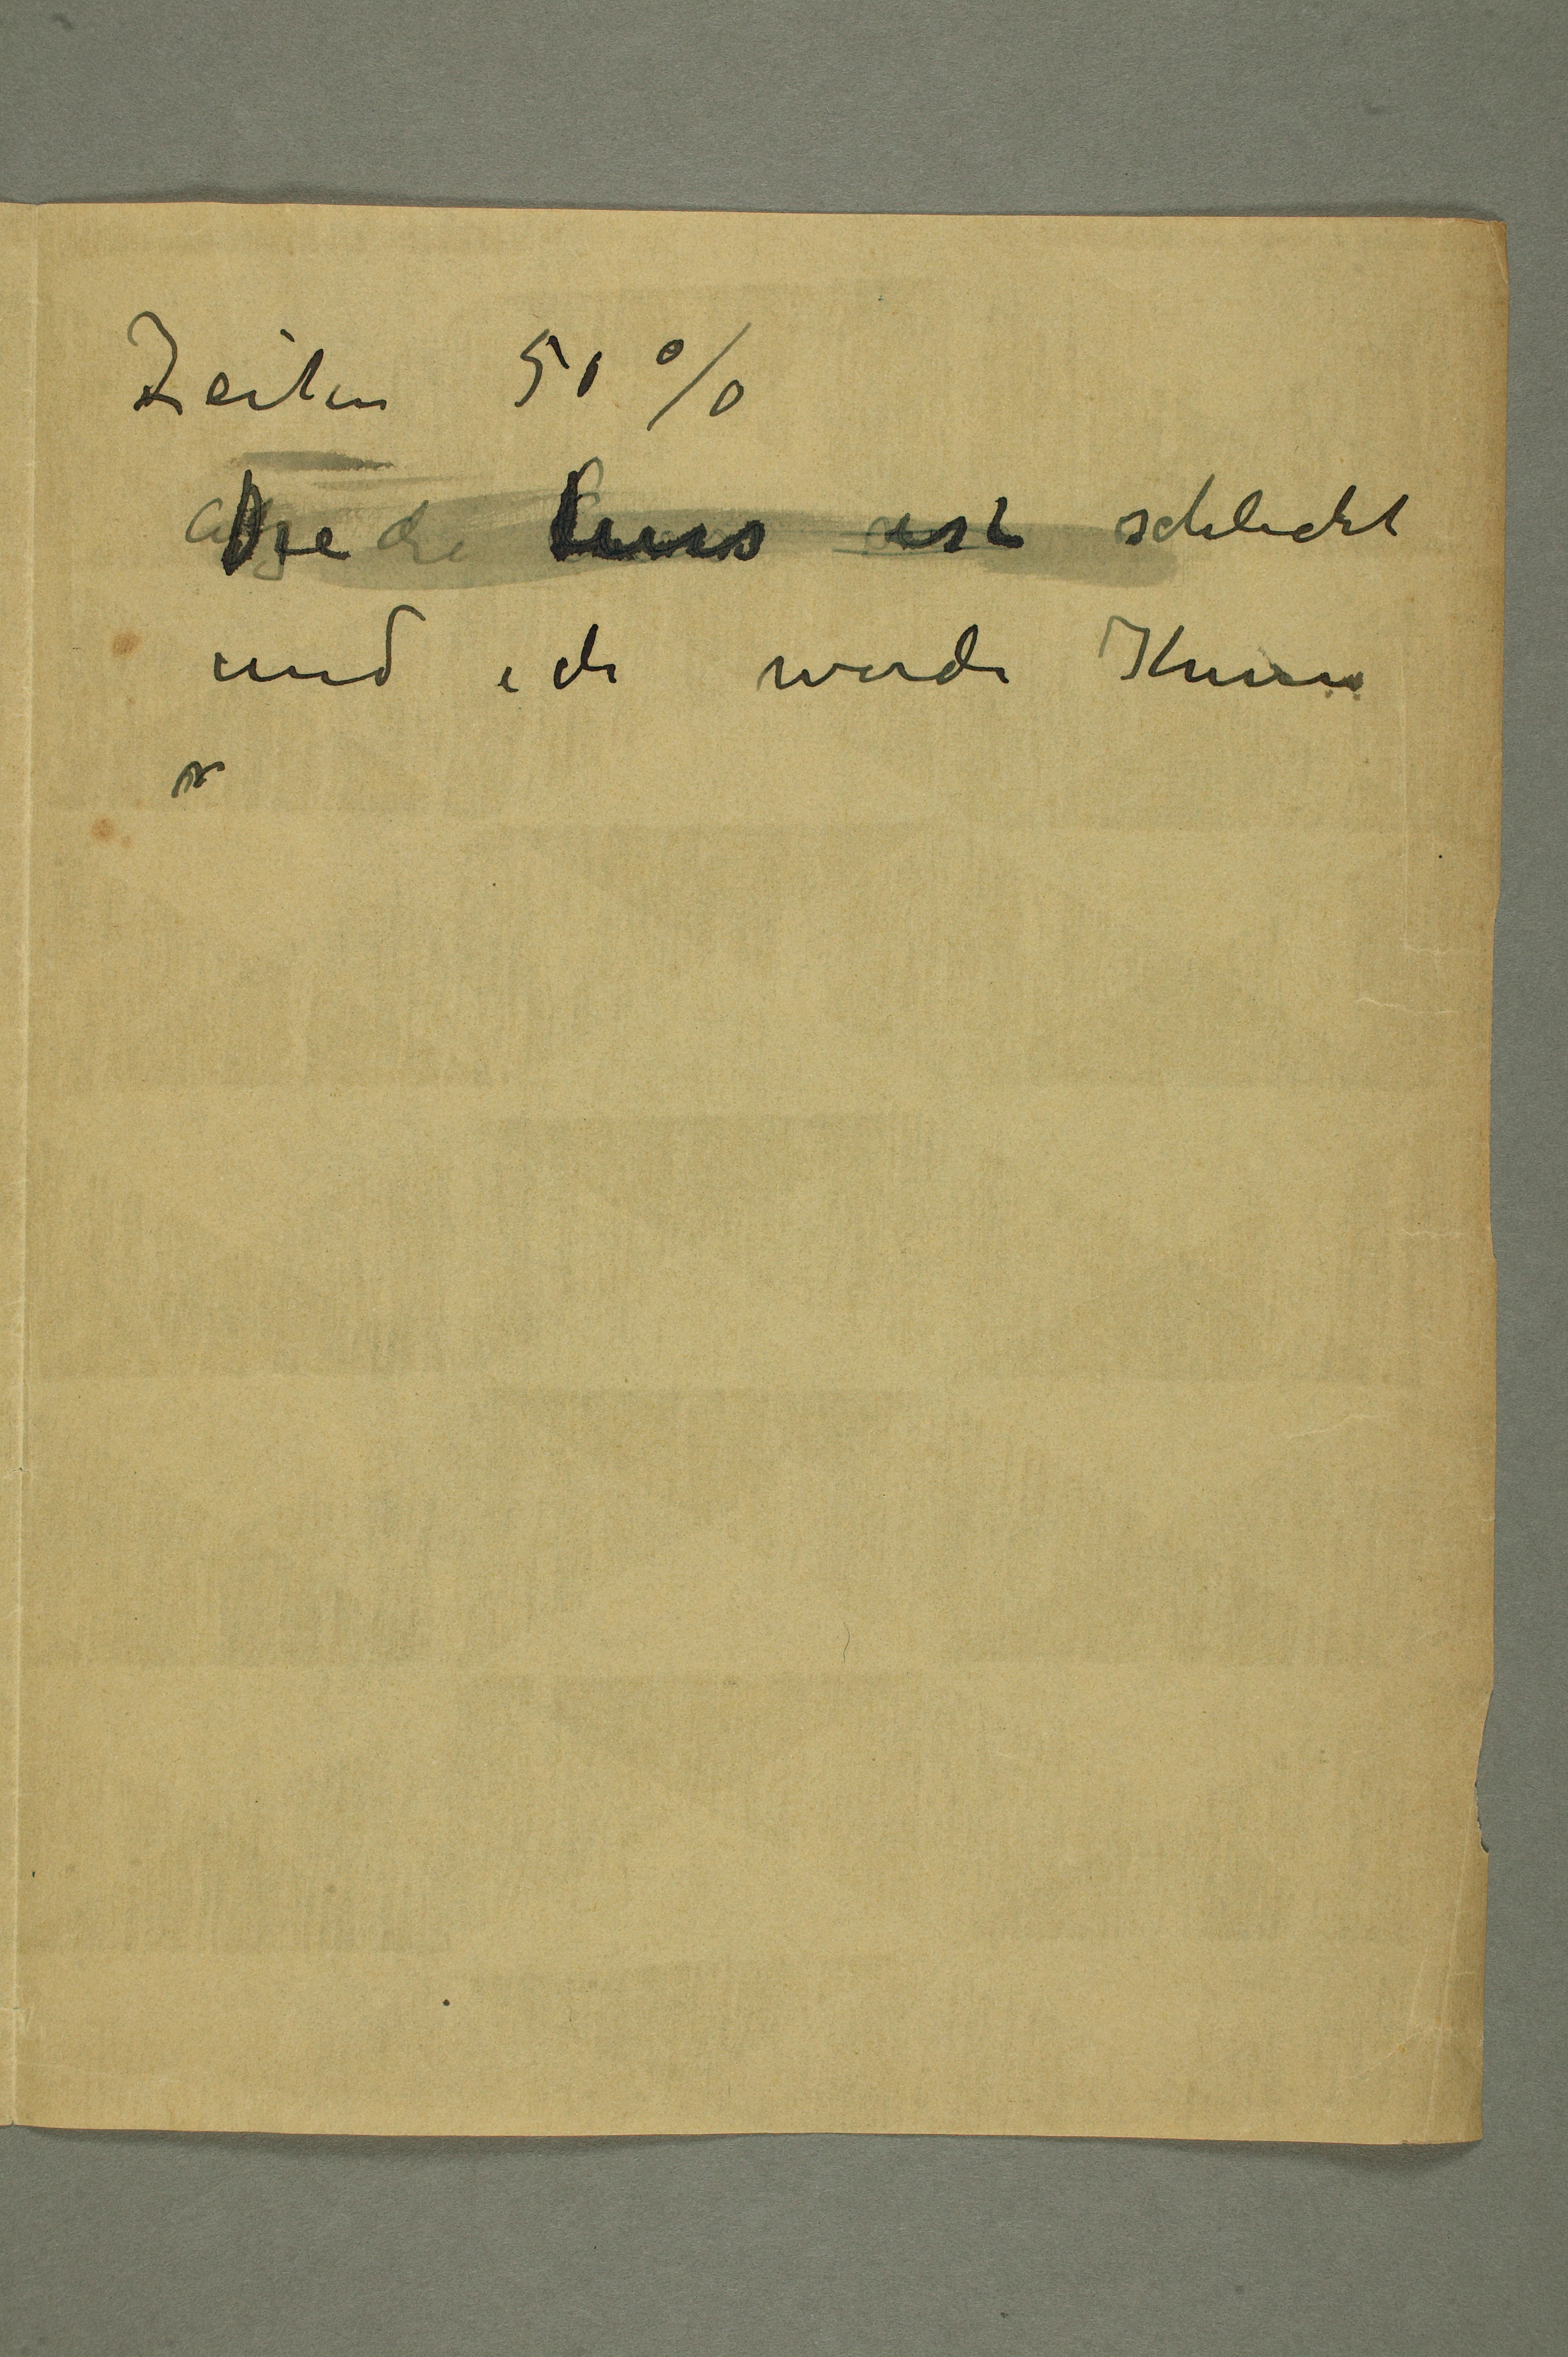 Zeiten 50 %
Die Curs ist schlecht
und ich werde Ihnen